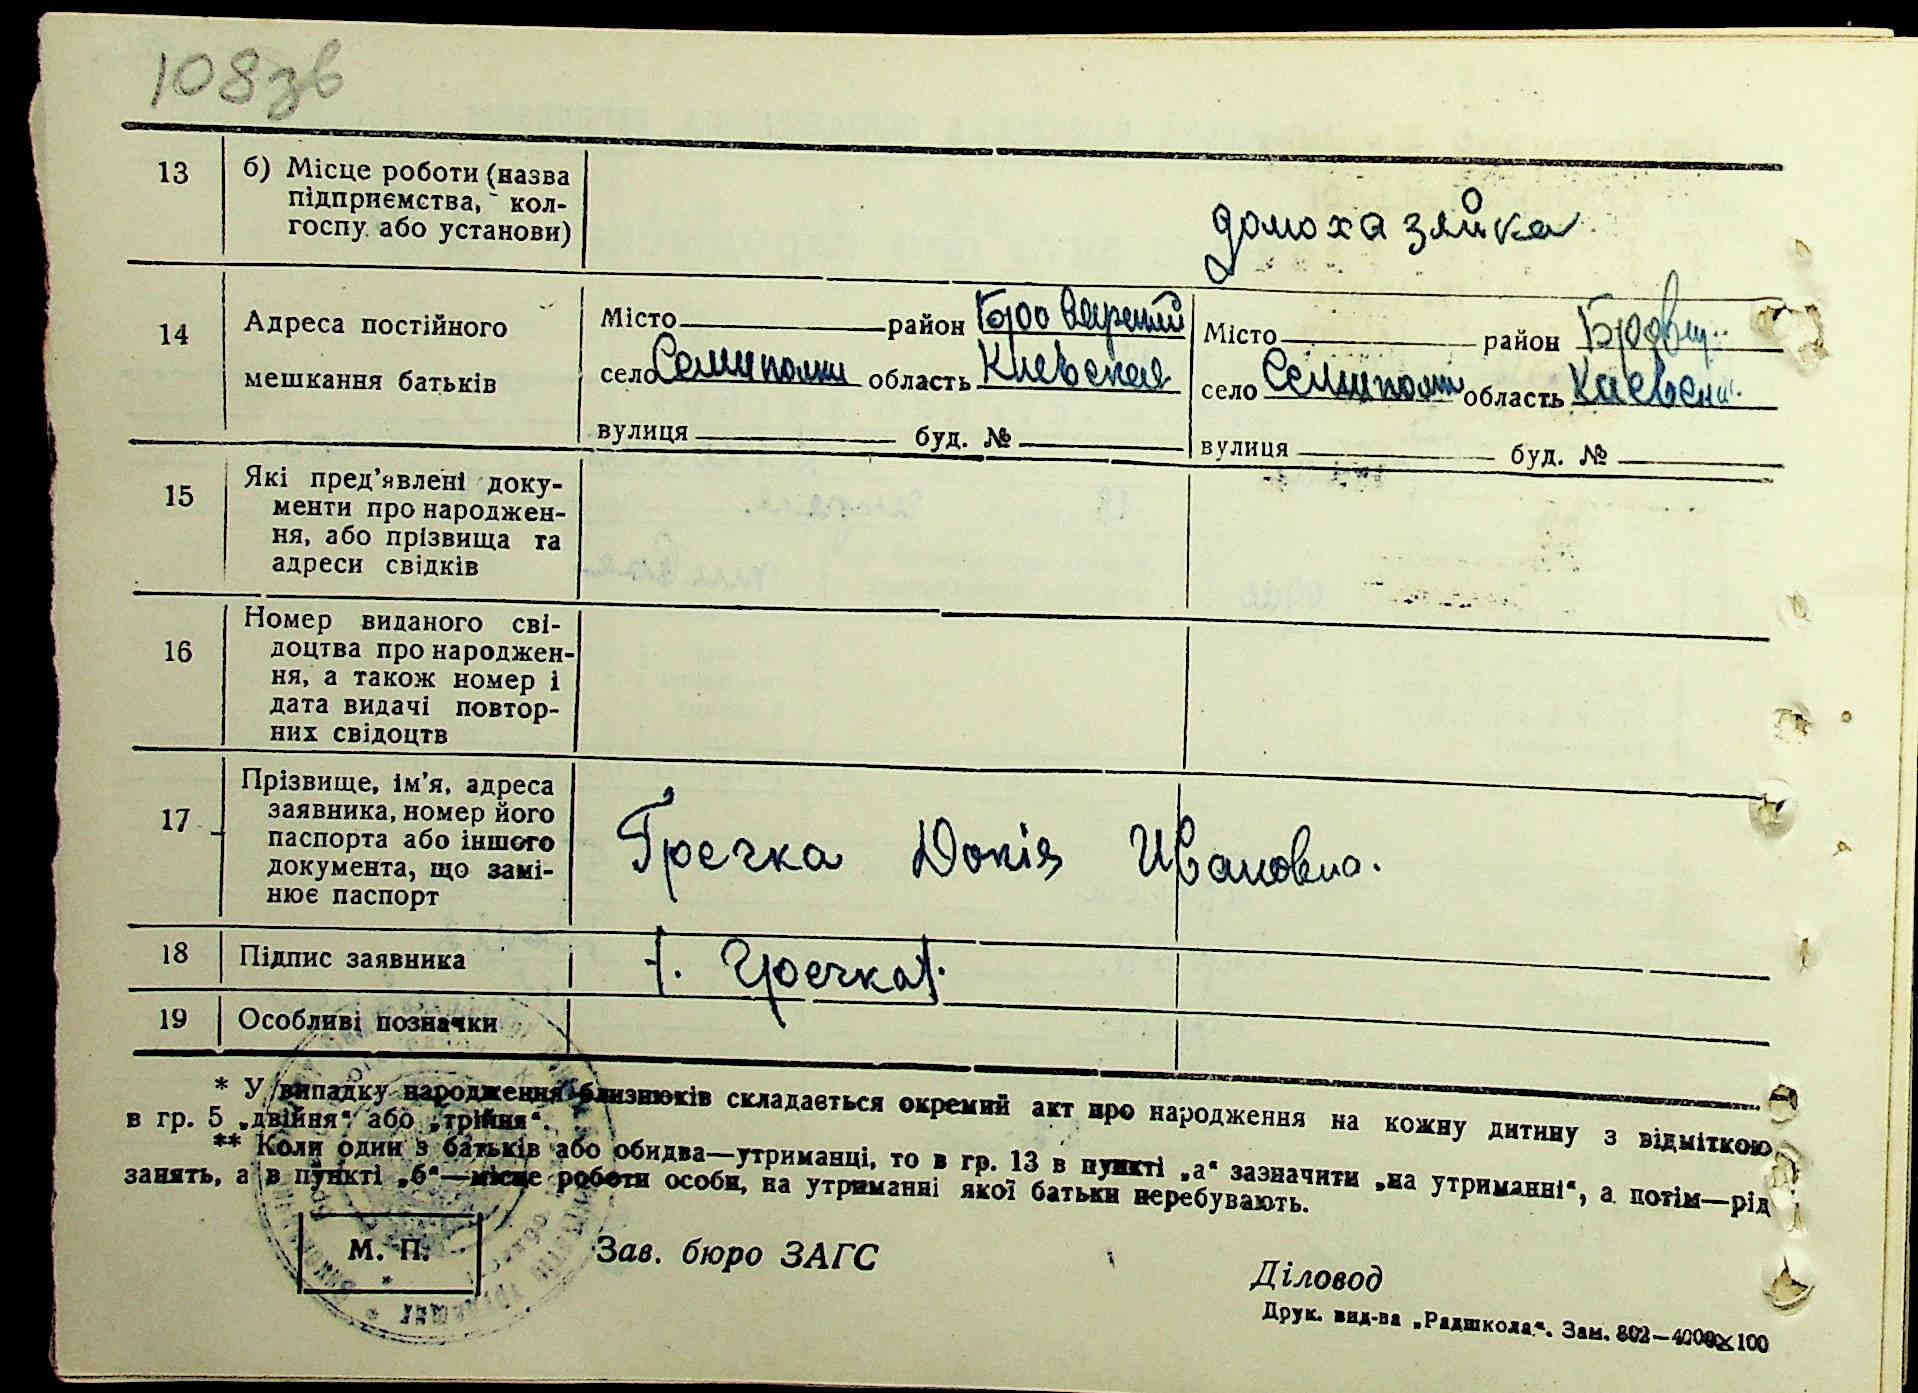 108зв
13 б) Місце роботи (назва
підприємства, кол-
госпу або установи)
домохазяйка
14 Адреса постійного
мешкання батьків
Місто район Броварский
село Семиполки область Киевская
вулиця буд. №
Місто район Бровар..
село Семиполки область Киевск.
вулиця буд. №
15 Які пред'явлені доку-
менти про народжен-
ня, або прізвища та
адреси свідків
16 Номер виданого сві-
доцтва про народжен-
ня, а також номер і
дата видачі повтор-
них свідоцтв
17 Прізвище, ім'я, адреса
заявника, номер його
паспорта або іншого
документа, що замі-
нює паспорт
Гречка Докія Ивановна.
18 Підпис заявника
Гречка
19 Особливі позначки
* У випадку народження близнюків складається окремий акт про народження на кожну дитину з відміткою
в гр. 5 „двійня“ або „трійня“.
** Коли один з батьків або обидва—утриманці, то в гр. 13 в пункті „а“ зазначити „на утриманні“, а потім—рід
занять, а в пункті „б“—місце роботи особи, на утриманні якої батьки перебувають.
М. П.
Зав. бюро ЗАГС
Діловод
Друк. вид-ва „Радшкола“. Зам. 802—4000×100